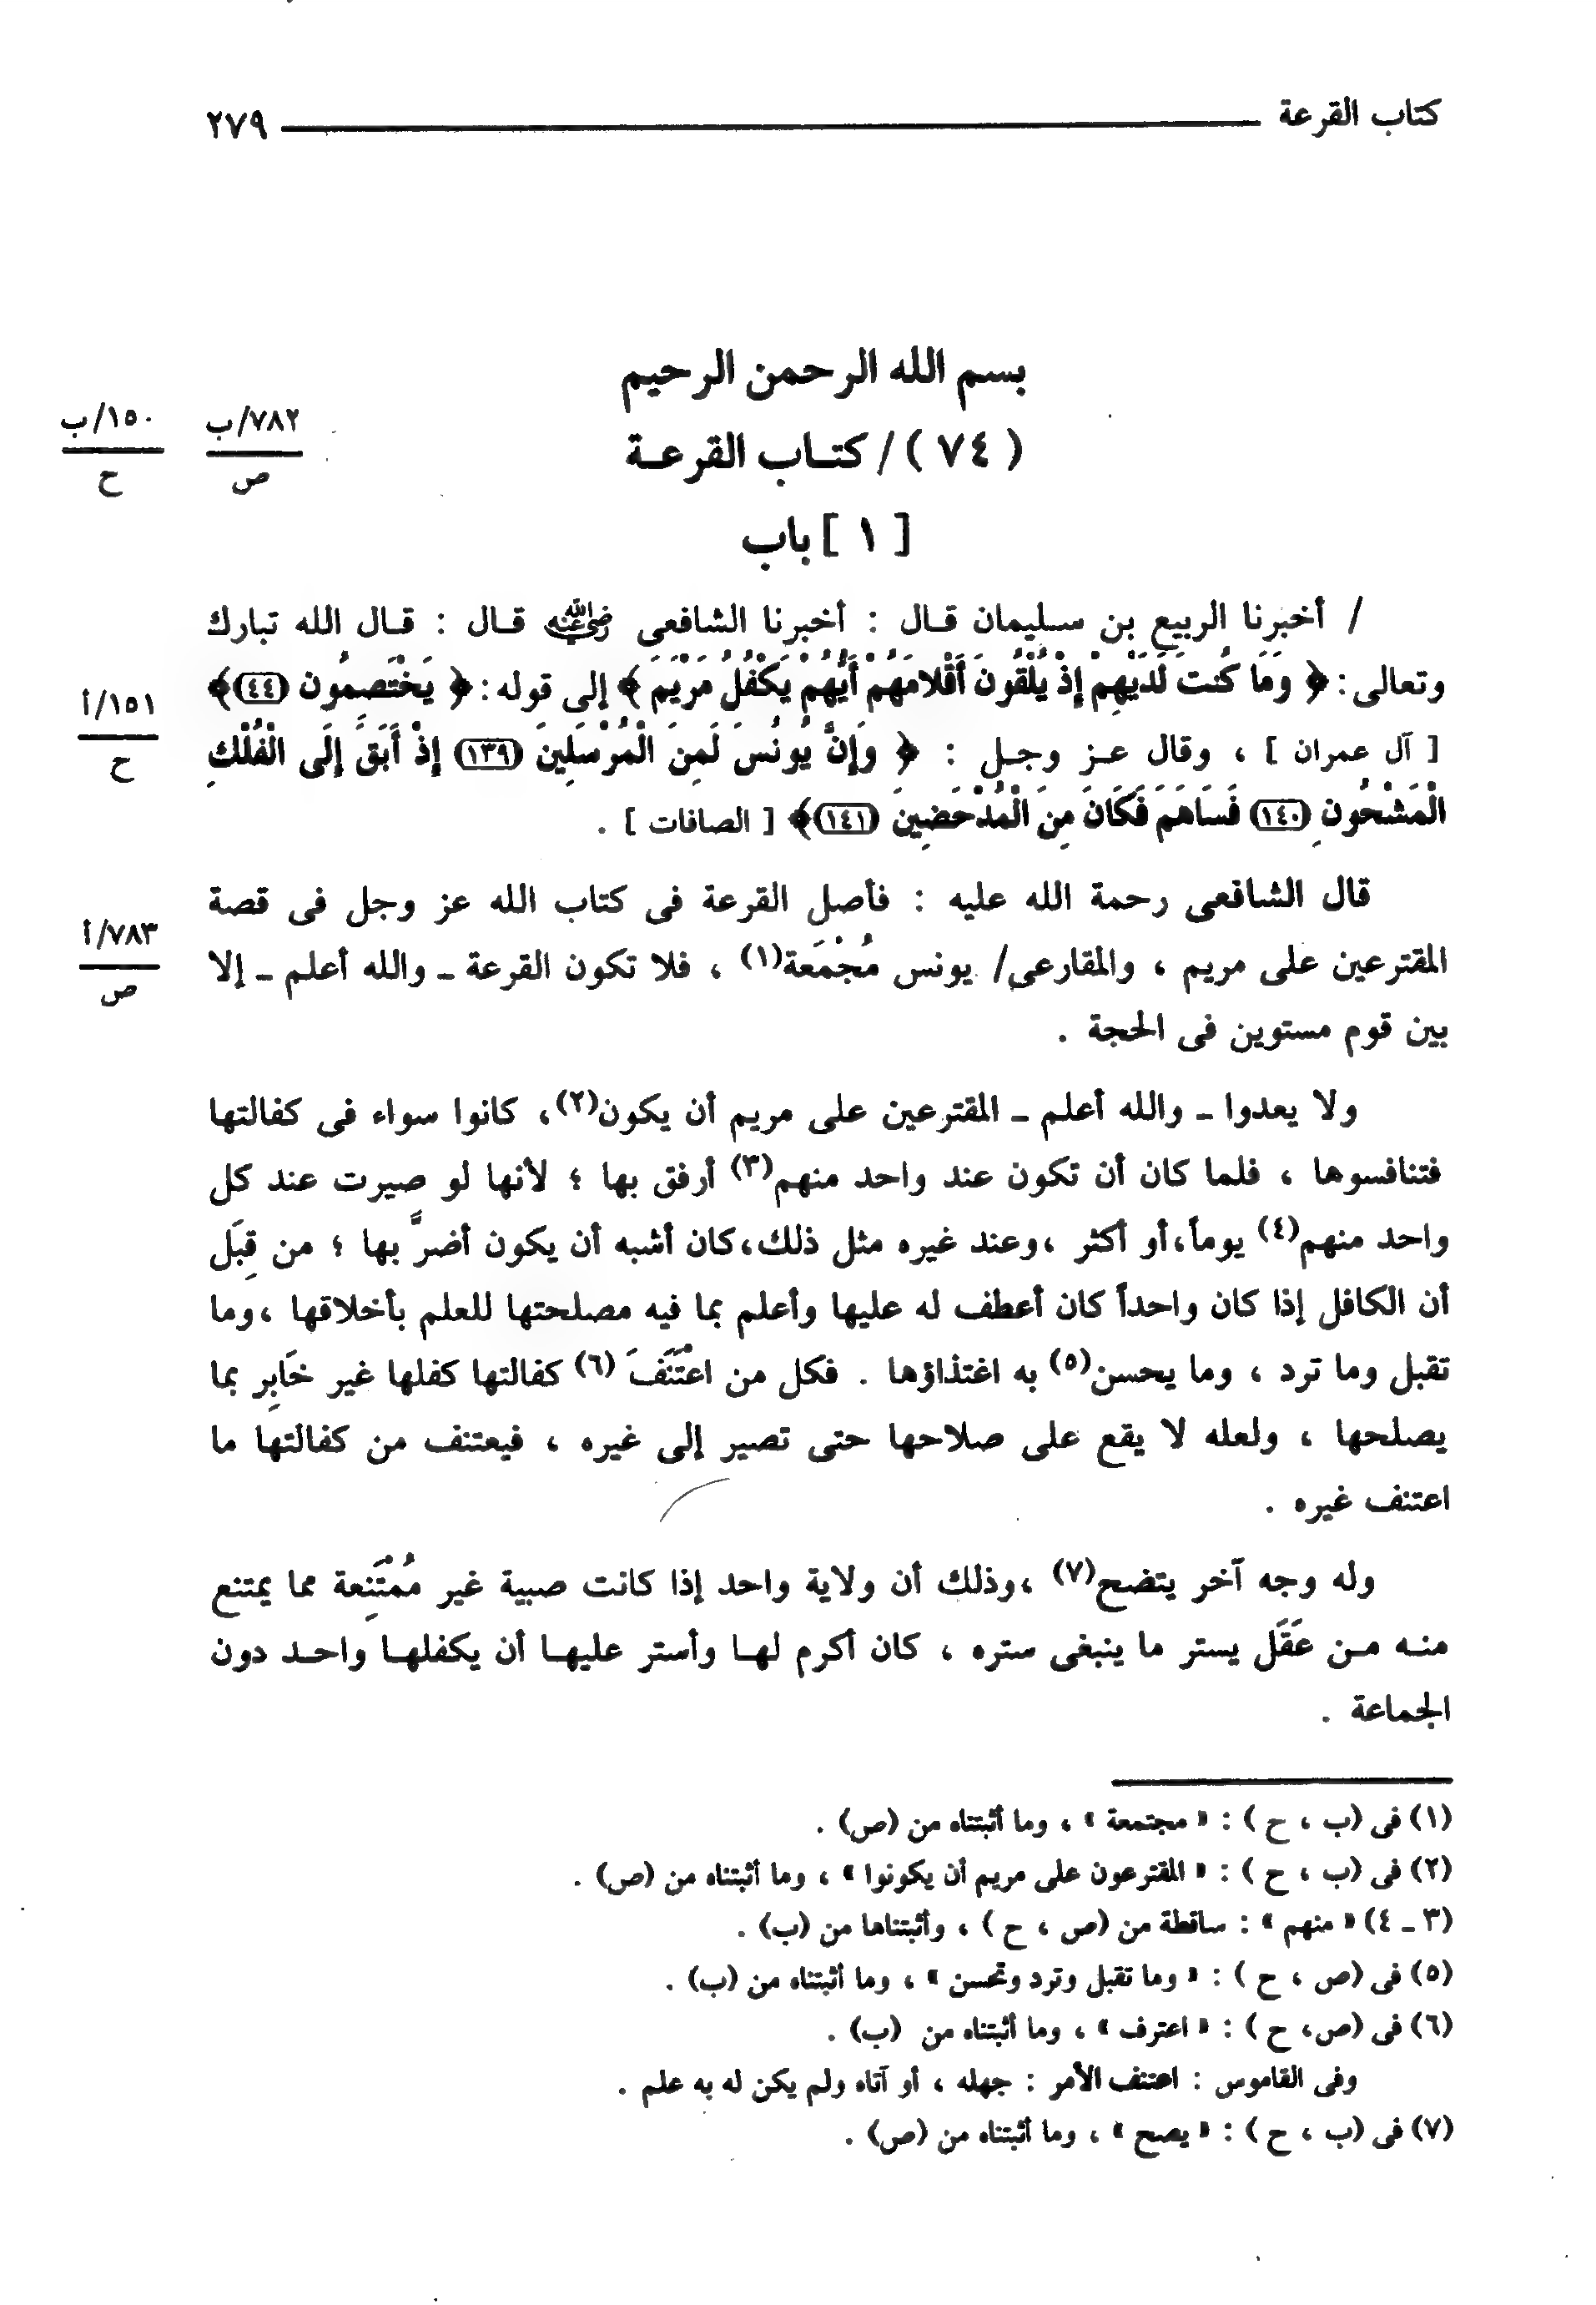 كتاب القرعة ٢٧٩
بسم الله الرحمن الرحيم
٧٨٢/ب
ص
١٥٠/ب
ح
( ٧٤ ) / كتـاب القرعـة
[ ١ ] باب
/ أخبرنا الربيع بن سليمان قـال : أخبرنا الشافعى رضي الله عنه قـال : قـال الله تبارك
وتعالى : ﴿ وَمَا كُنتَ لَدَيْهِمْ إِذْ يُلْقُونَ أَقْلامَهُمْ أَيُّهُمْ يَكْفُلُ مَرْيَمَ ﴾ إلى قوله : ﴿ يَخْتَصِمُون (٤٤)﴾
١٥١/أ
ح
[ آل عمران ] ، وقال عـز وجـل : ﴿ وَإِنَّ يُونُسَ لَمِنَ الْمُرْسَلِينَ (١٣٩) إِذْ أَبَقَ إِلَى الْفُلْكِ
الْمَشْحُونِ (١٤٠) فَسَاهَمَ فَكَانَ مِنَ الْمُدْحَضِينَ (١٤١)﴾ [ الصافات ] .
قال الشافعى رحمة الله عليه : فأصل القرعة فى كتاب الله عز وجل فى قصة
٧٨٣/أ
ص
المقترعين على مريم ، والمقارعى/ يونس مُجْمَعة(١) ، فلا تكون القرعة ـ والله أعلم ـ إلا
بين قوم مستوين فى الحجة .
ولا يعدوا ـ والله أعلم ـ المقترعين على مريم أن يكون(٢)، كانوا سواء فى كفالتها
فتنافسوها ، فلما كان أن تكون عند واحد منهم(٣) أرفق بها ؛ لأنها لو صيرت عند كل
واحد منهم(٤) يوماً،أو أكثر ،وعند غيره مثل ذلك،كان أشبه أن يكون أضرَّ بها ؛ من قِبَل
أن الكافل إذا كان واحداً كان أعطف له عليها وأعلم بما فيه مصلحتها للعلم بأخلاقها ،وما
تقبل وما ترد ، وما يحسن(٥) به اغتذاؤها . فكل من اعْتَنَفَ (٦) كفالتها كفلها غير خَابِر بما
يصلحها ، ولعله لا يقع على صلاحها حتى تصير إلى غيره ، فيعتنف من كفالتها ما
اعتنف غيره .
وله وجه آخر يتضح(٧) ،وذلك أن ولاية واحد إذا كانت صبية غير مُمْتَنِعة مما يمتنع
منـه مـن عَقَل يستر ما ينبغى ستره ، كان أكرم لهـا وأستر عليهـا أن يكفلهـا واحـد دون
الجماعة .
(١) فى (ب ، ح ) : « مجتمعة » ، وما أثبتناه من (ص) .
(٢) فى (ب ، ح ) : « المقترعون على مريم أن يكونوا » ، وما أثبتناه من (ص) .
(٣ ـ ٤) « منهم » : ساقطة من (ص ، ح ) ، وأثبتناها من (ب) .
(٥) فى (ص ، ح ) : « وما تقبل وترد وتحسن » ، وما أثبتناه من (ب) .
(٦) فى (ص، ح ) : « اعترف » ، وما أثبتناه من (ب) .
وفى القاموس : اعتنف الأمر : جهله ، أو آتاه ولم يكن له به علم .
(٧) فى (ب ، ح ) : « يصح » ، وما أثبتناه من (ص) .